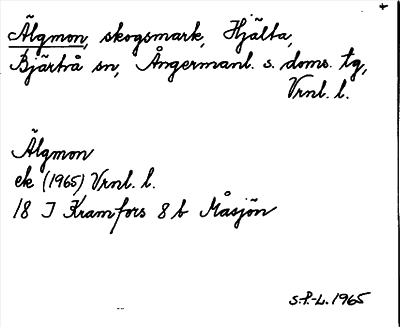 Älgmon, skogsmark, Hjälta,
Bjärtrå sn, Ångermanl. s. doms. tg,
Vrnl. l.
Älgmon
ek (1965) Vrnl. l.
18 I Kramfors 8 b Måsjön
S.P.-L. 1965